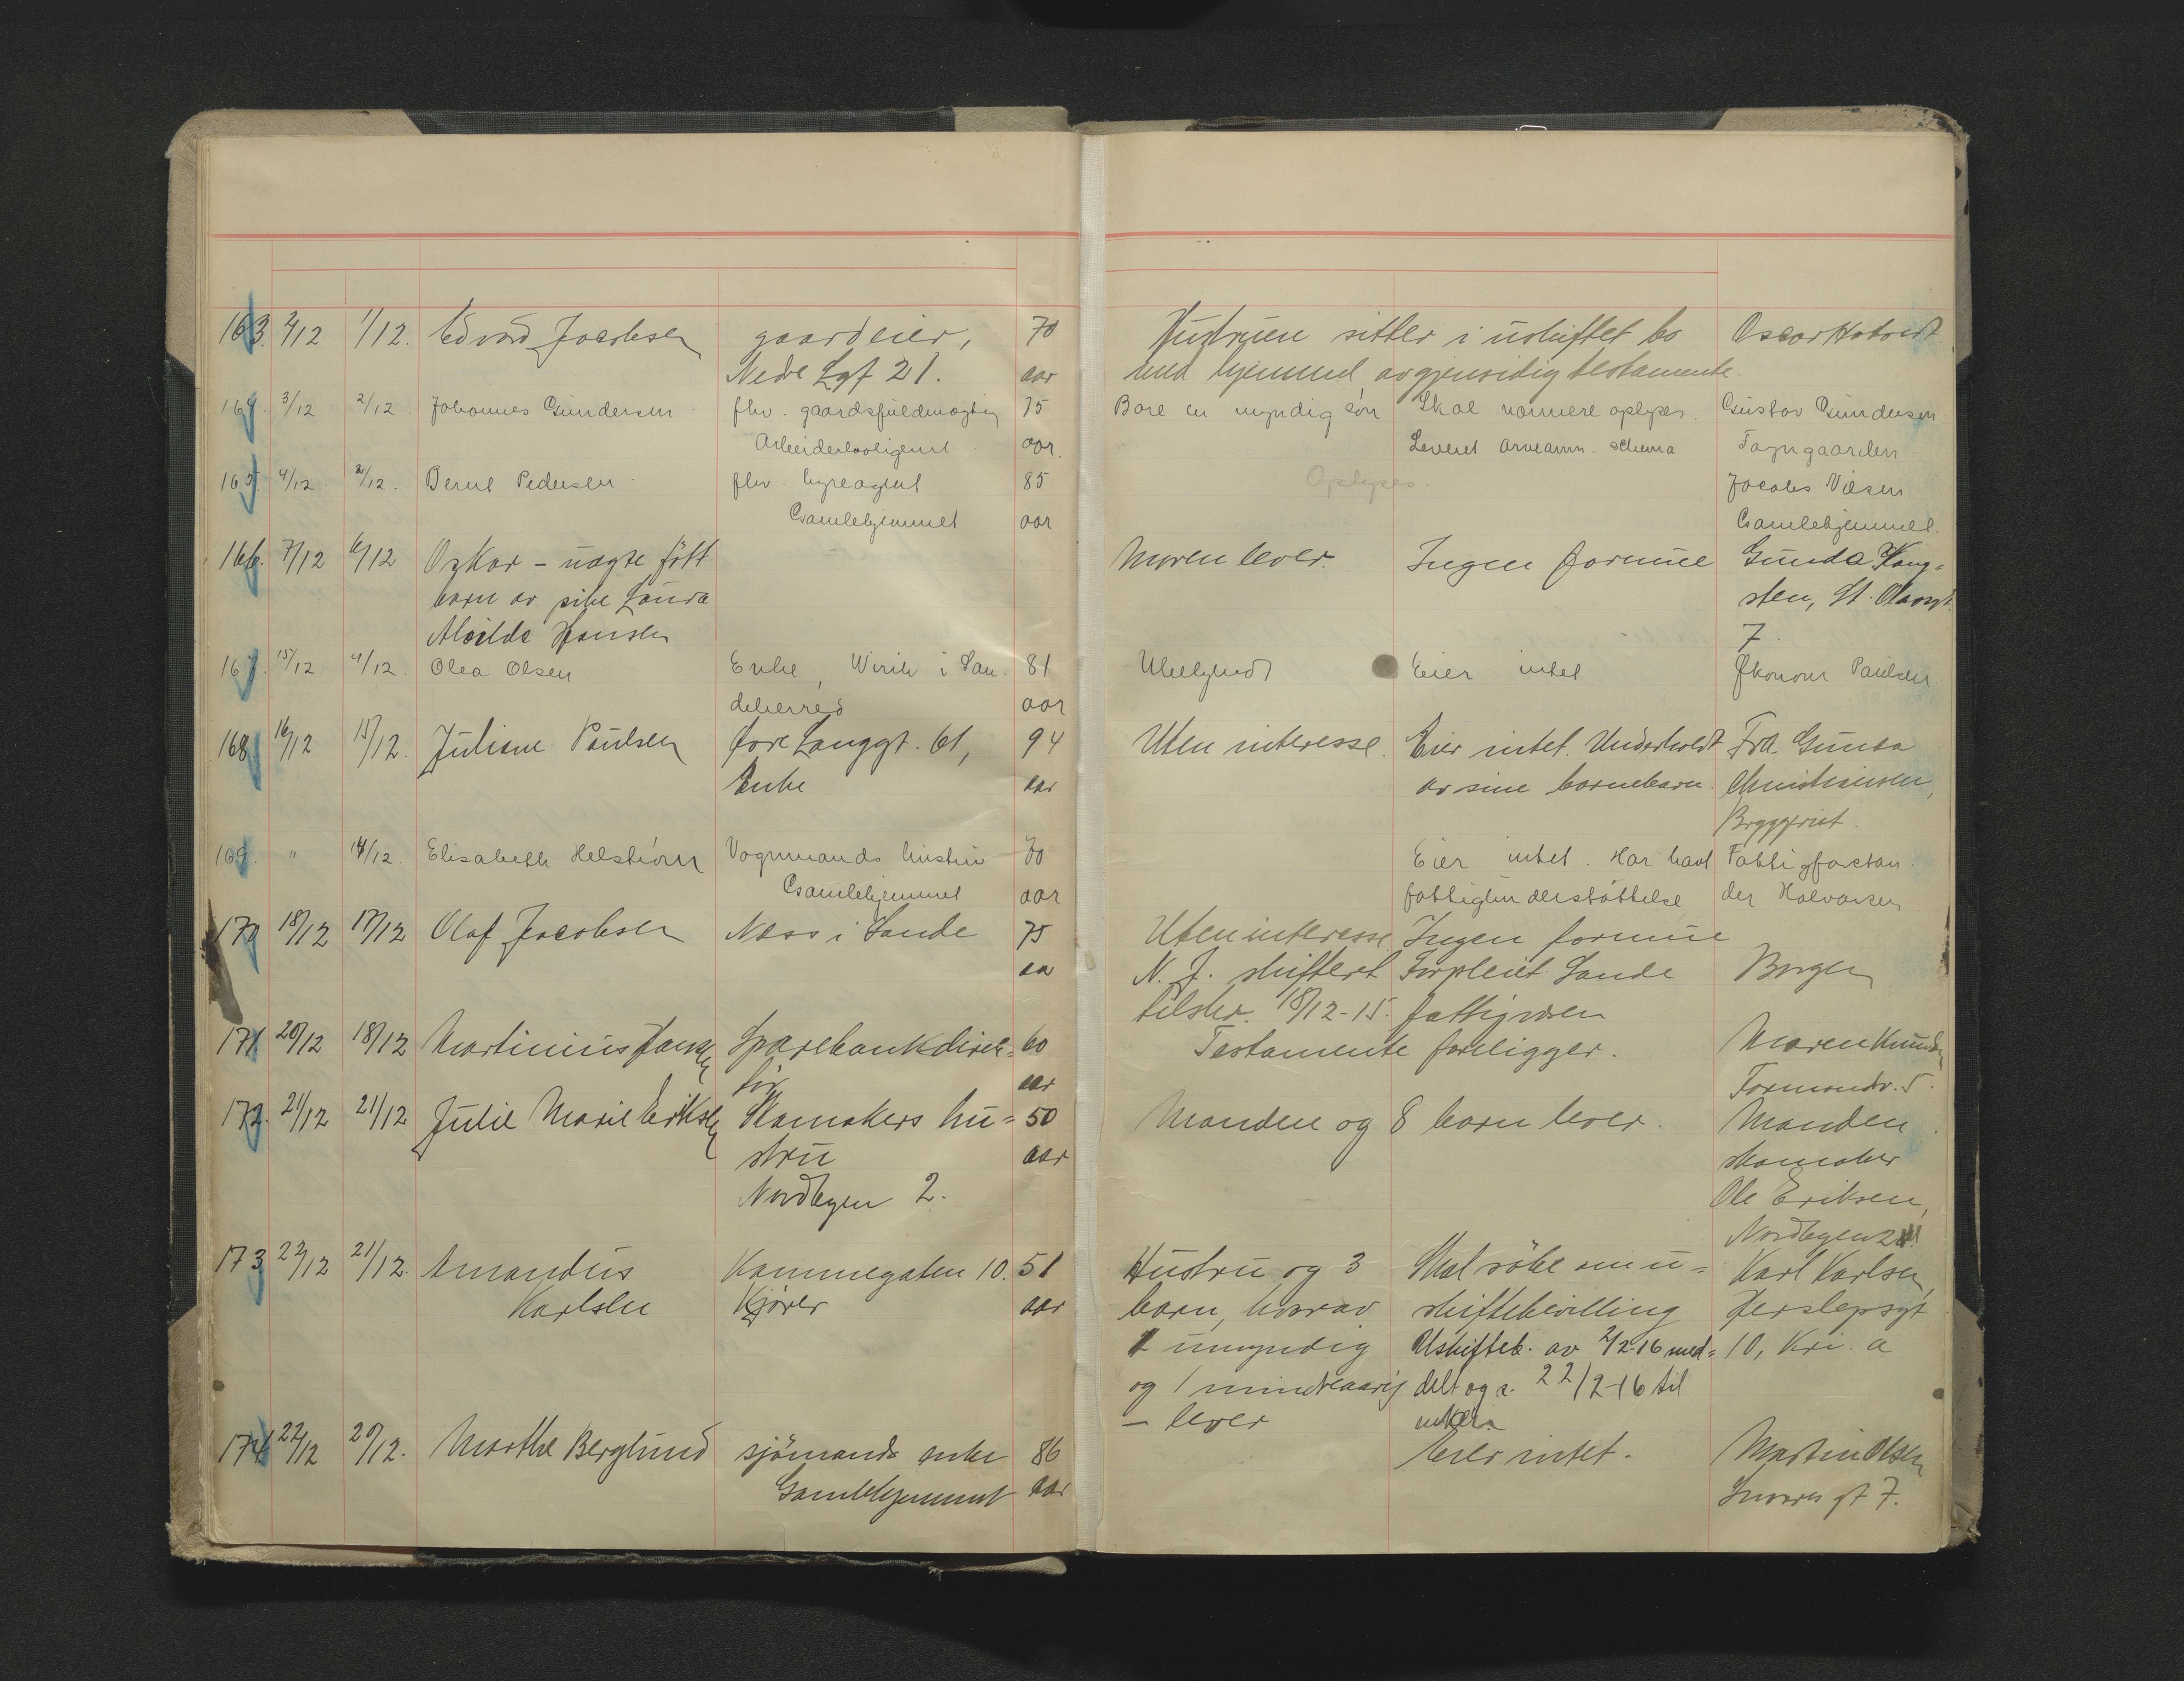 163. 2/12 1/12. Edvard Jacobsen gaardeier, 70 Hustruen sitter i uskiftet bo Oscar
Nedre Lgt 21. aar med hjemmel av gjensidig testamente.
164. 3/12 2/12 Johannes Gundersen fhv. gaardsfuldmægtig 75 Bare en myndig søn Skal nærmere oplyses. Gustav Gundersen
Arbeiderboligene aar. Leveret arveanm. schema
165. 4/12. 2/12. Bernt Pedersen fhv. hyreagent 85 Oplyses Jacobs
Gamlehjemmet aar Gamlehjemmet.
166. 7/12 6/12 Oskar – uægte født Moren lever. Ingen formue Gunda Kong=
barn av pike Laura sten, St. Olavsgt.
Alvilde Hansen 7.
167. 15/12 9/12. Olea Olsen Enke, i San- 81 Ubekjendt Eier intet Økonom Paulsen
deherred aar
168. 16/12 15/12. Juliane Paulsen Øvre Langgt. 61, 94 Uten interesse. Eier intet. Underholdt Fra Gunda
Enke aar av sine barnebarn. Christiansen,
Bryggeriet.
169. " 14/12. Elisabeth Helström Vognmands hustru 70 Eier intet. Har havt Fattigforstan-
Gamlehjemmet aar fattigunderstøttelse der Halvorsen
170 18/12 17/12 Olaf Jacobsen Næss i Sande 75 Uten interesse Ingen formue
aar N. J. skifteret Forpleiet Sande Borgen
tilskr. 18/12-15. fattigvæsen
171 20/12 18/12 Martinius Jansen Sparebankdirek= 60 Testamente foreligger. Maren Knudsen
tør aar Formandv. 5.
172. 21/12 21/12 Julie Marie Eriksen Skomakers hu= 50 Manden og 8 barn lever. Manden
stru aar skomaker
Nordbyen 2. Ole Eriksen,
Nordbyen 2
173 22/12 21/12. Amandus Kammegaten 10. 51 Hustru og 3 Skal søke om u= Karl Karlsen,
Karlsen Kjører aar barn, hvorav skiftebevilling Herslepsgt
1 umyndig Uskifteb. av 2/2-16 med= 10, Kri. a
og 1 mindreaarig delt og s. 22/2-16 til
– lever enken
174 22/12 20/12. Marthe Berglund sjömands enke 86 Eier intet. Martin Olsen
Gamlehjemmet aar gt 7.